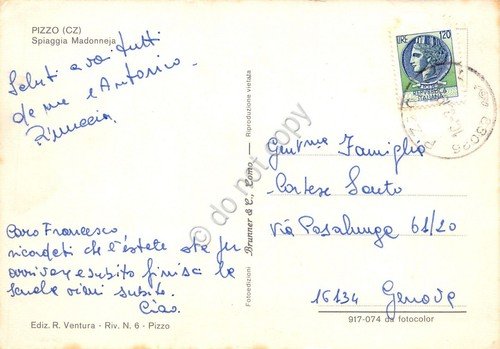 PIZZO (CZ)
Spiaggia Madonneja
Saluti a voi tutti
da me e Antonio
Rinuccia
Caro Francesco
ricordati che l'estate sta per
arrivare e subito finisci la
scuola vieni subito.
Ciao.
Ediz. R. Ventura - Riv. N. 6 - Pizzo
Fotoedizioni Brunner & C., Como — Riproduzione vietata
LIRE 120
ITALIANA
89026
Gent.ma Famiglia
Cortese Santo
Via Posalunga 61/20
16134 Genova
917-074 da fotocolor
do not copy